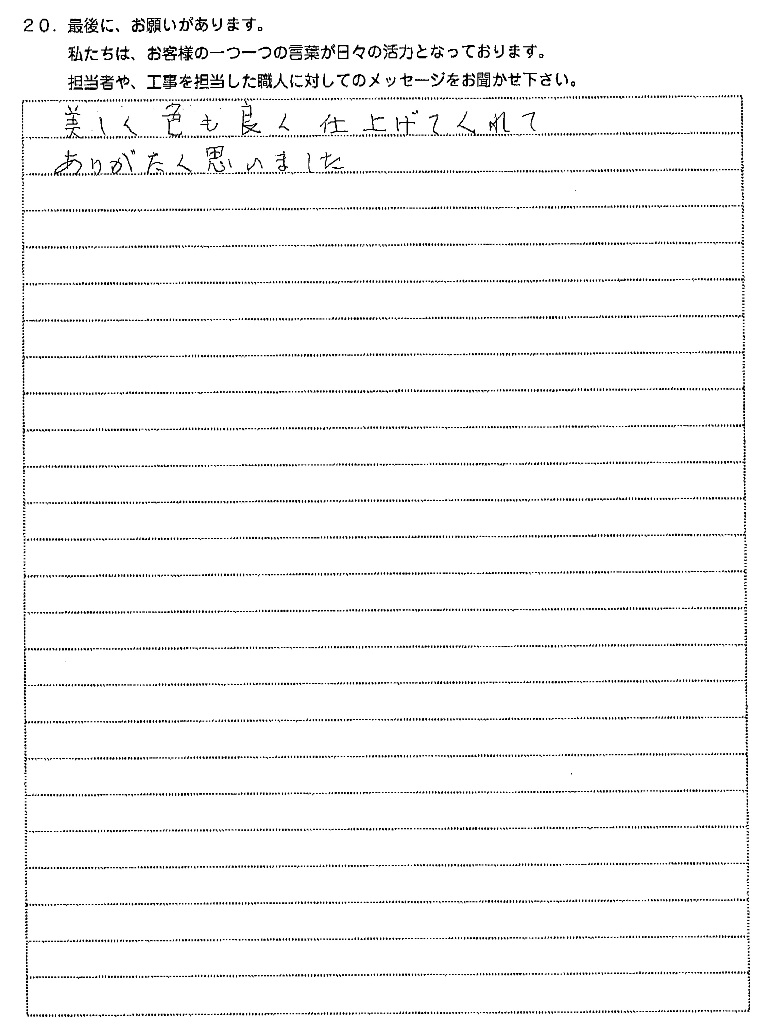 ２０．最後に、お願いがあります。
私たちは、お客様の一つ一つの言葉が日々の活力となっております。
担当者や、工事を担当した職人に対してのメッセージをお聞かせ下さい。
美しく色も良く仕上げてくれて
ありがたく思いました